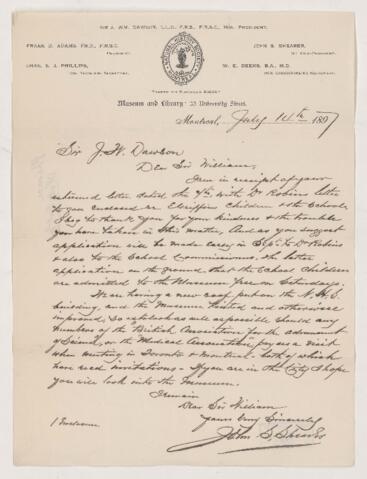 SIR J. WM. DAWSON, LL.D., F.R.S., F.R.S.C., HON. PRESIDENT.
FRANK D. ADAMS, PH.D., F.R.S.C.
PRESIDENT.
JOHN S. SHEARER,
1ST VICE-PRESIDENT.
CHAS. S. J. PHILLIPS,
W. E. DEEKS, B.A., M.D.
NATURAL HISTORY SOCIETY
Museum and Library: 32 University Street.
Montreal, July 14th 1897
Sir J. W. Dawson
Dear Sir William,
I am in receipt of your
esteemed letter dated the 7th with Dr Robins letter
to you enclosed re Children & the Schools
I beg to thank you for your kindness & the trouble
you have taken in this matter, and as you suggest
application will be made early in Sept. to Dr Robins
& also to the School Commissioners, the latter
application on the ground that the School Children
are admitted to the Museum free on Saturdays.
We are having a new roof put on the N. H. S.
building, and the Museum painted and otherwise
improved, so as to look as well as possible should any
members of the British Association for the advancement
of Science, or the Medical Association pay us a visit
when meeting in Toronto & Montreal - both of which
have received invitations - If you are in the City I hope
you will look into the Museum.
I remain
Dear Sir William
Yours Very Sincerely
John S. Shearer